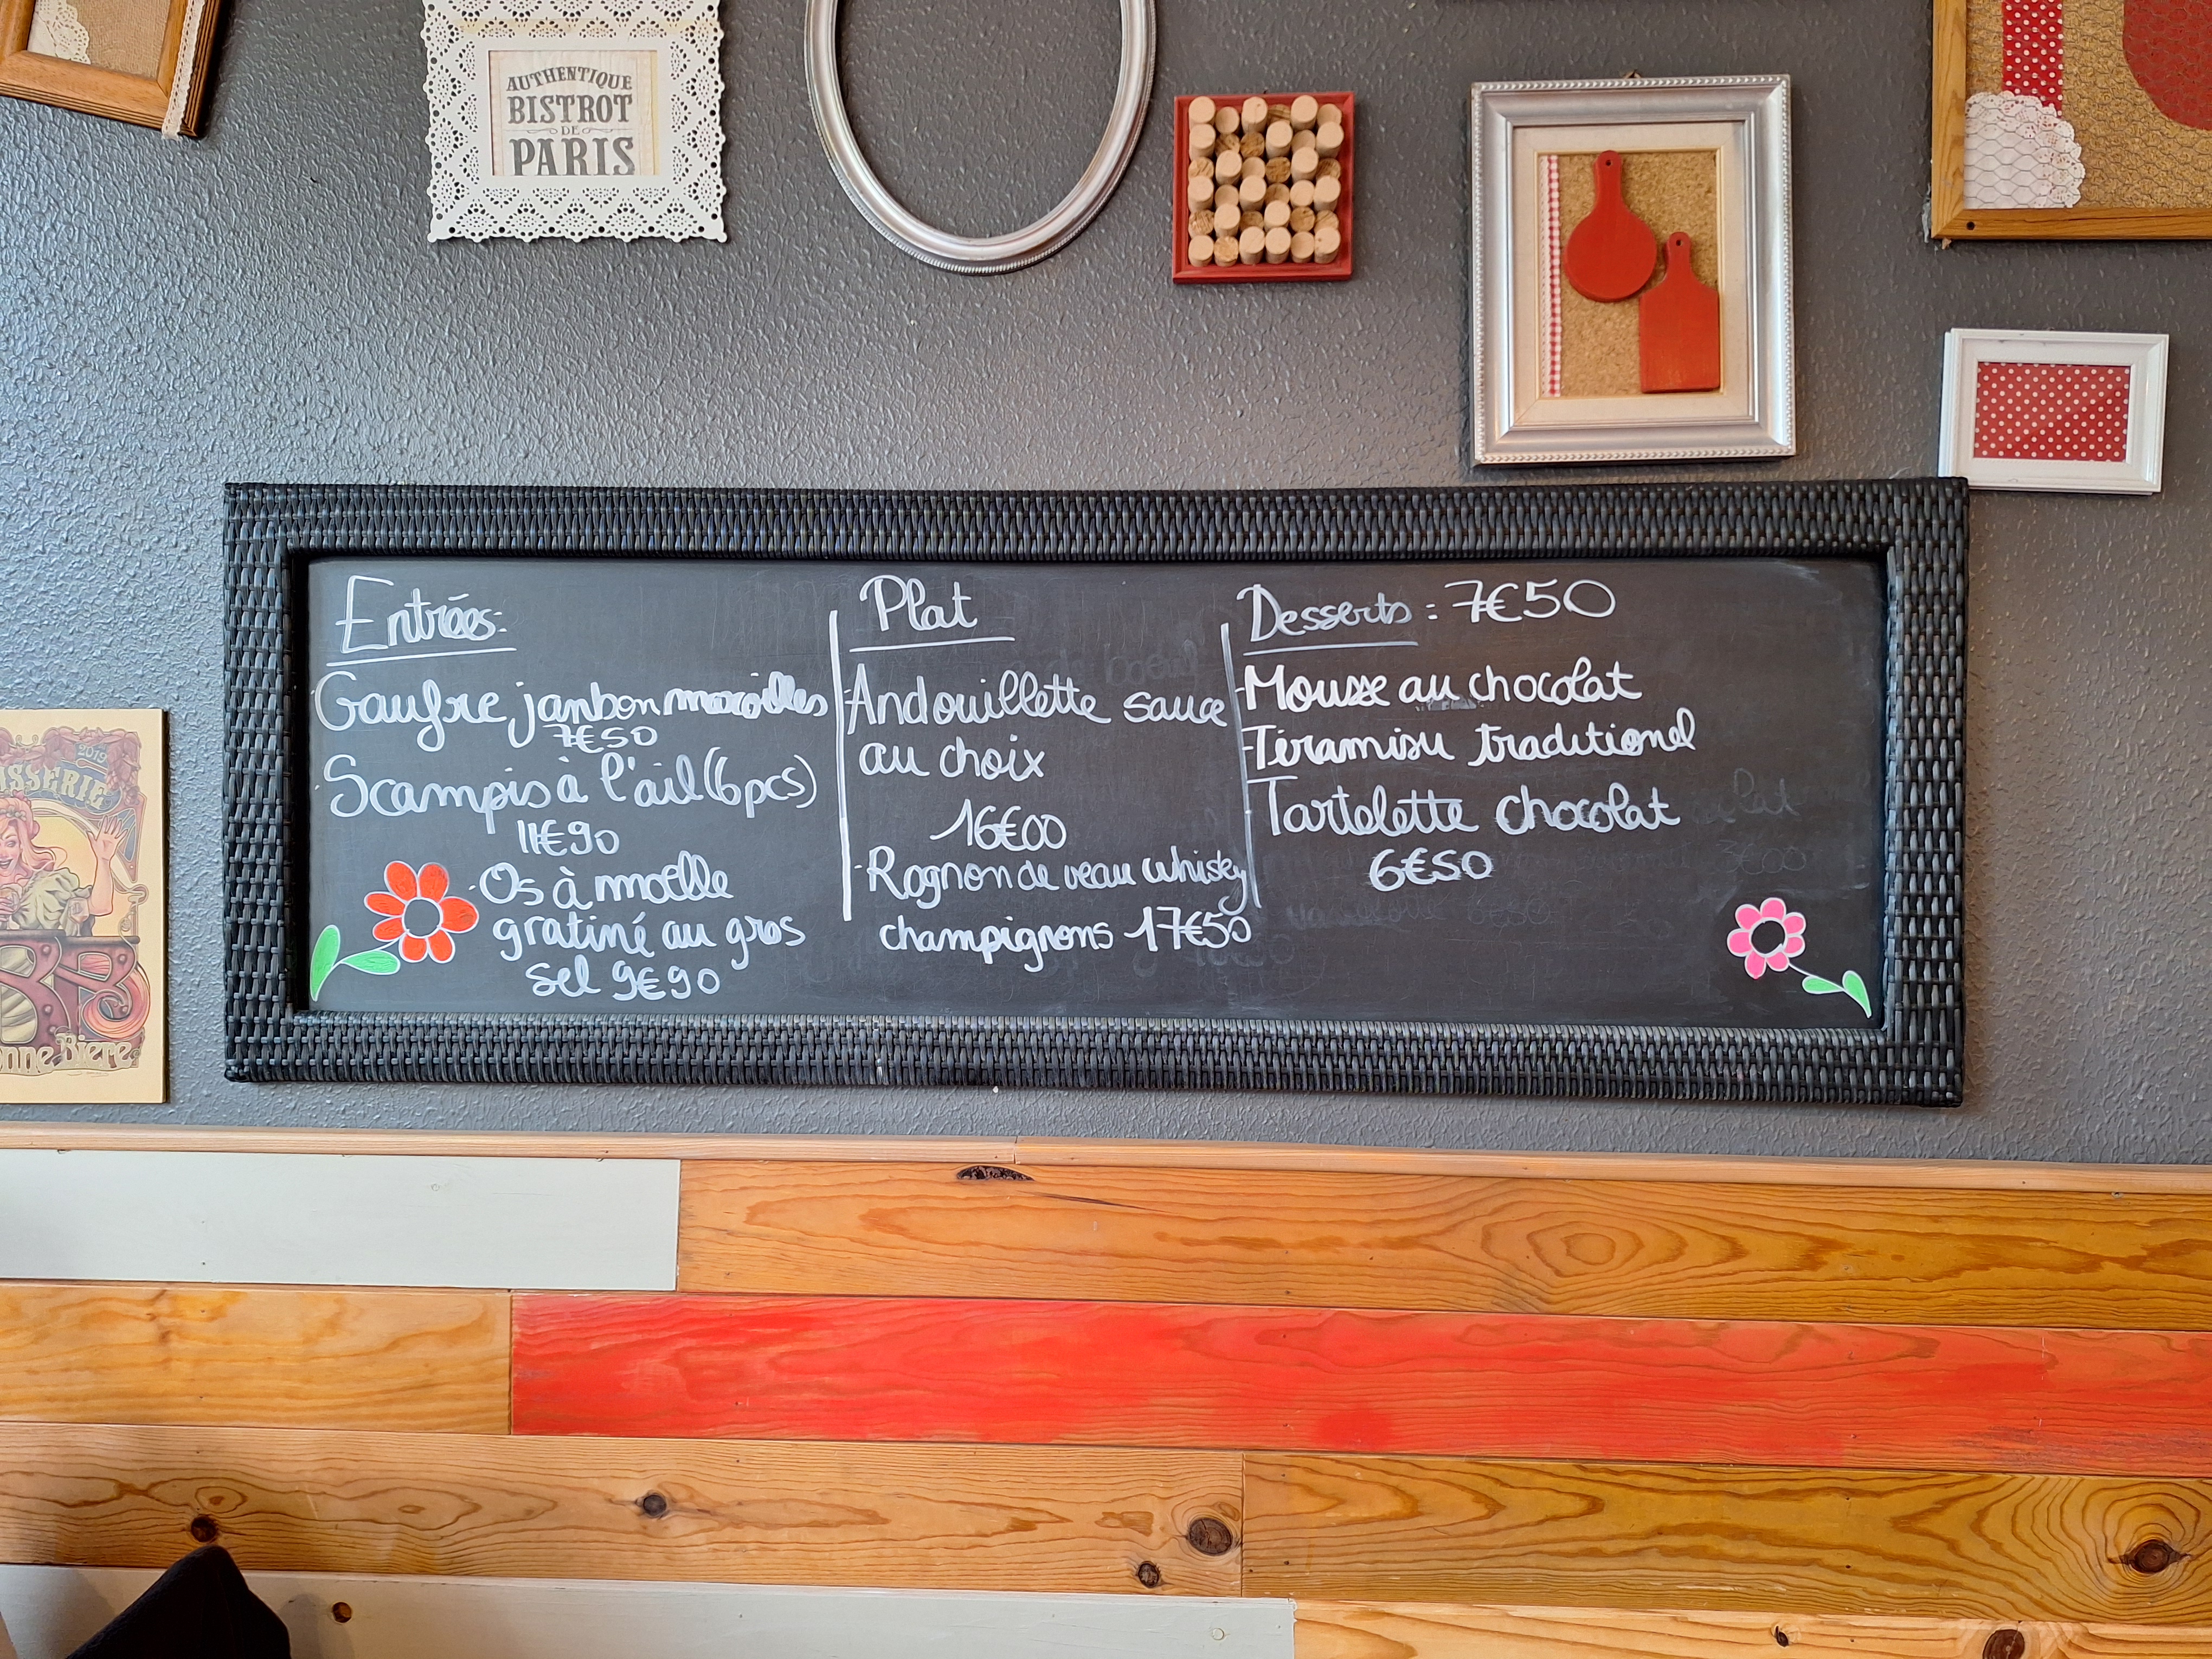 AUTHENTIQUE
BISTROT
DE
PARIS
Entrées:
Gaufre jambon maroilles
7€50
Scampis à l'ail (6pcs)
11€90
Os à moelle
gratiné au gros
sel 9€90
Plat
Andouillette sauce
au choix
16€00
Rognon de veau whisky
champignons 17€50
Desserts : 7€50
Mousse au chocolat
Tiramisu traditionel
Tartelette chocolat
6€50
2013
Bière